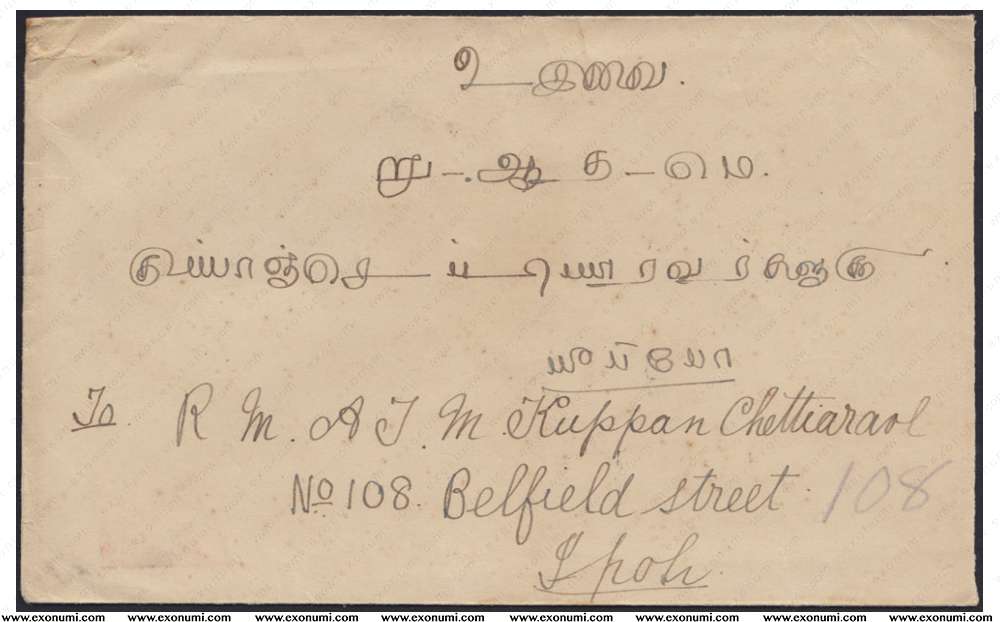 உ
று - ஆ த - ம மெ.
குப்பாஞ்செட்டியாரவர்களுக்கு
யீப்போ
To. R M. A T. M. Kuppan Chettiaravl
No 108. Belfield street. 108
Ipoh.
www.exonumi.com www.exonumi.com www.exonumi.com www.exonumi.com www.exonumi.com www.exonumi.com www.exonumi.com